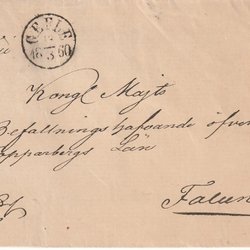 GEFLE
12
18 3 60
Kongl Majts
Befallningshafvande öfver
Kopparbergs Län
Falun